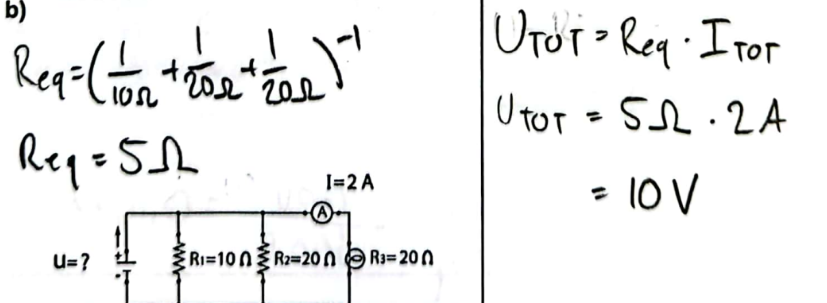 b)
Req=(1/10Ω + 1/20Ω + 1/20Ω)⁻¹
Req = 5Ω
I=2 A
A
U=?
+
-
R1=10 Ω
R2=20 Ω
R3=20 Ω
UTOT = Req · ITOT
UTOT = 5Ω · 2A
= 10V